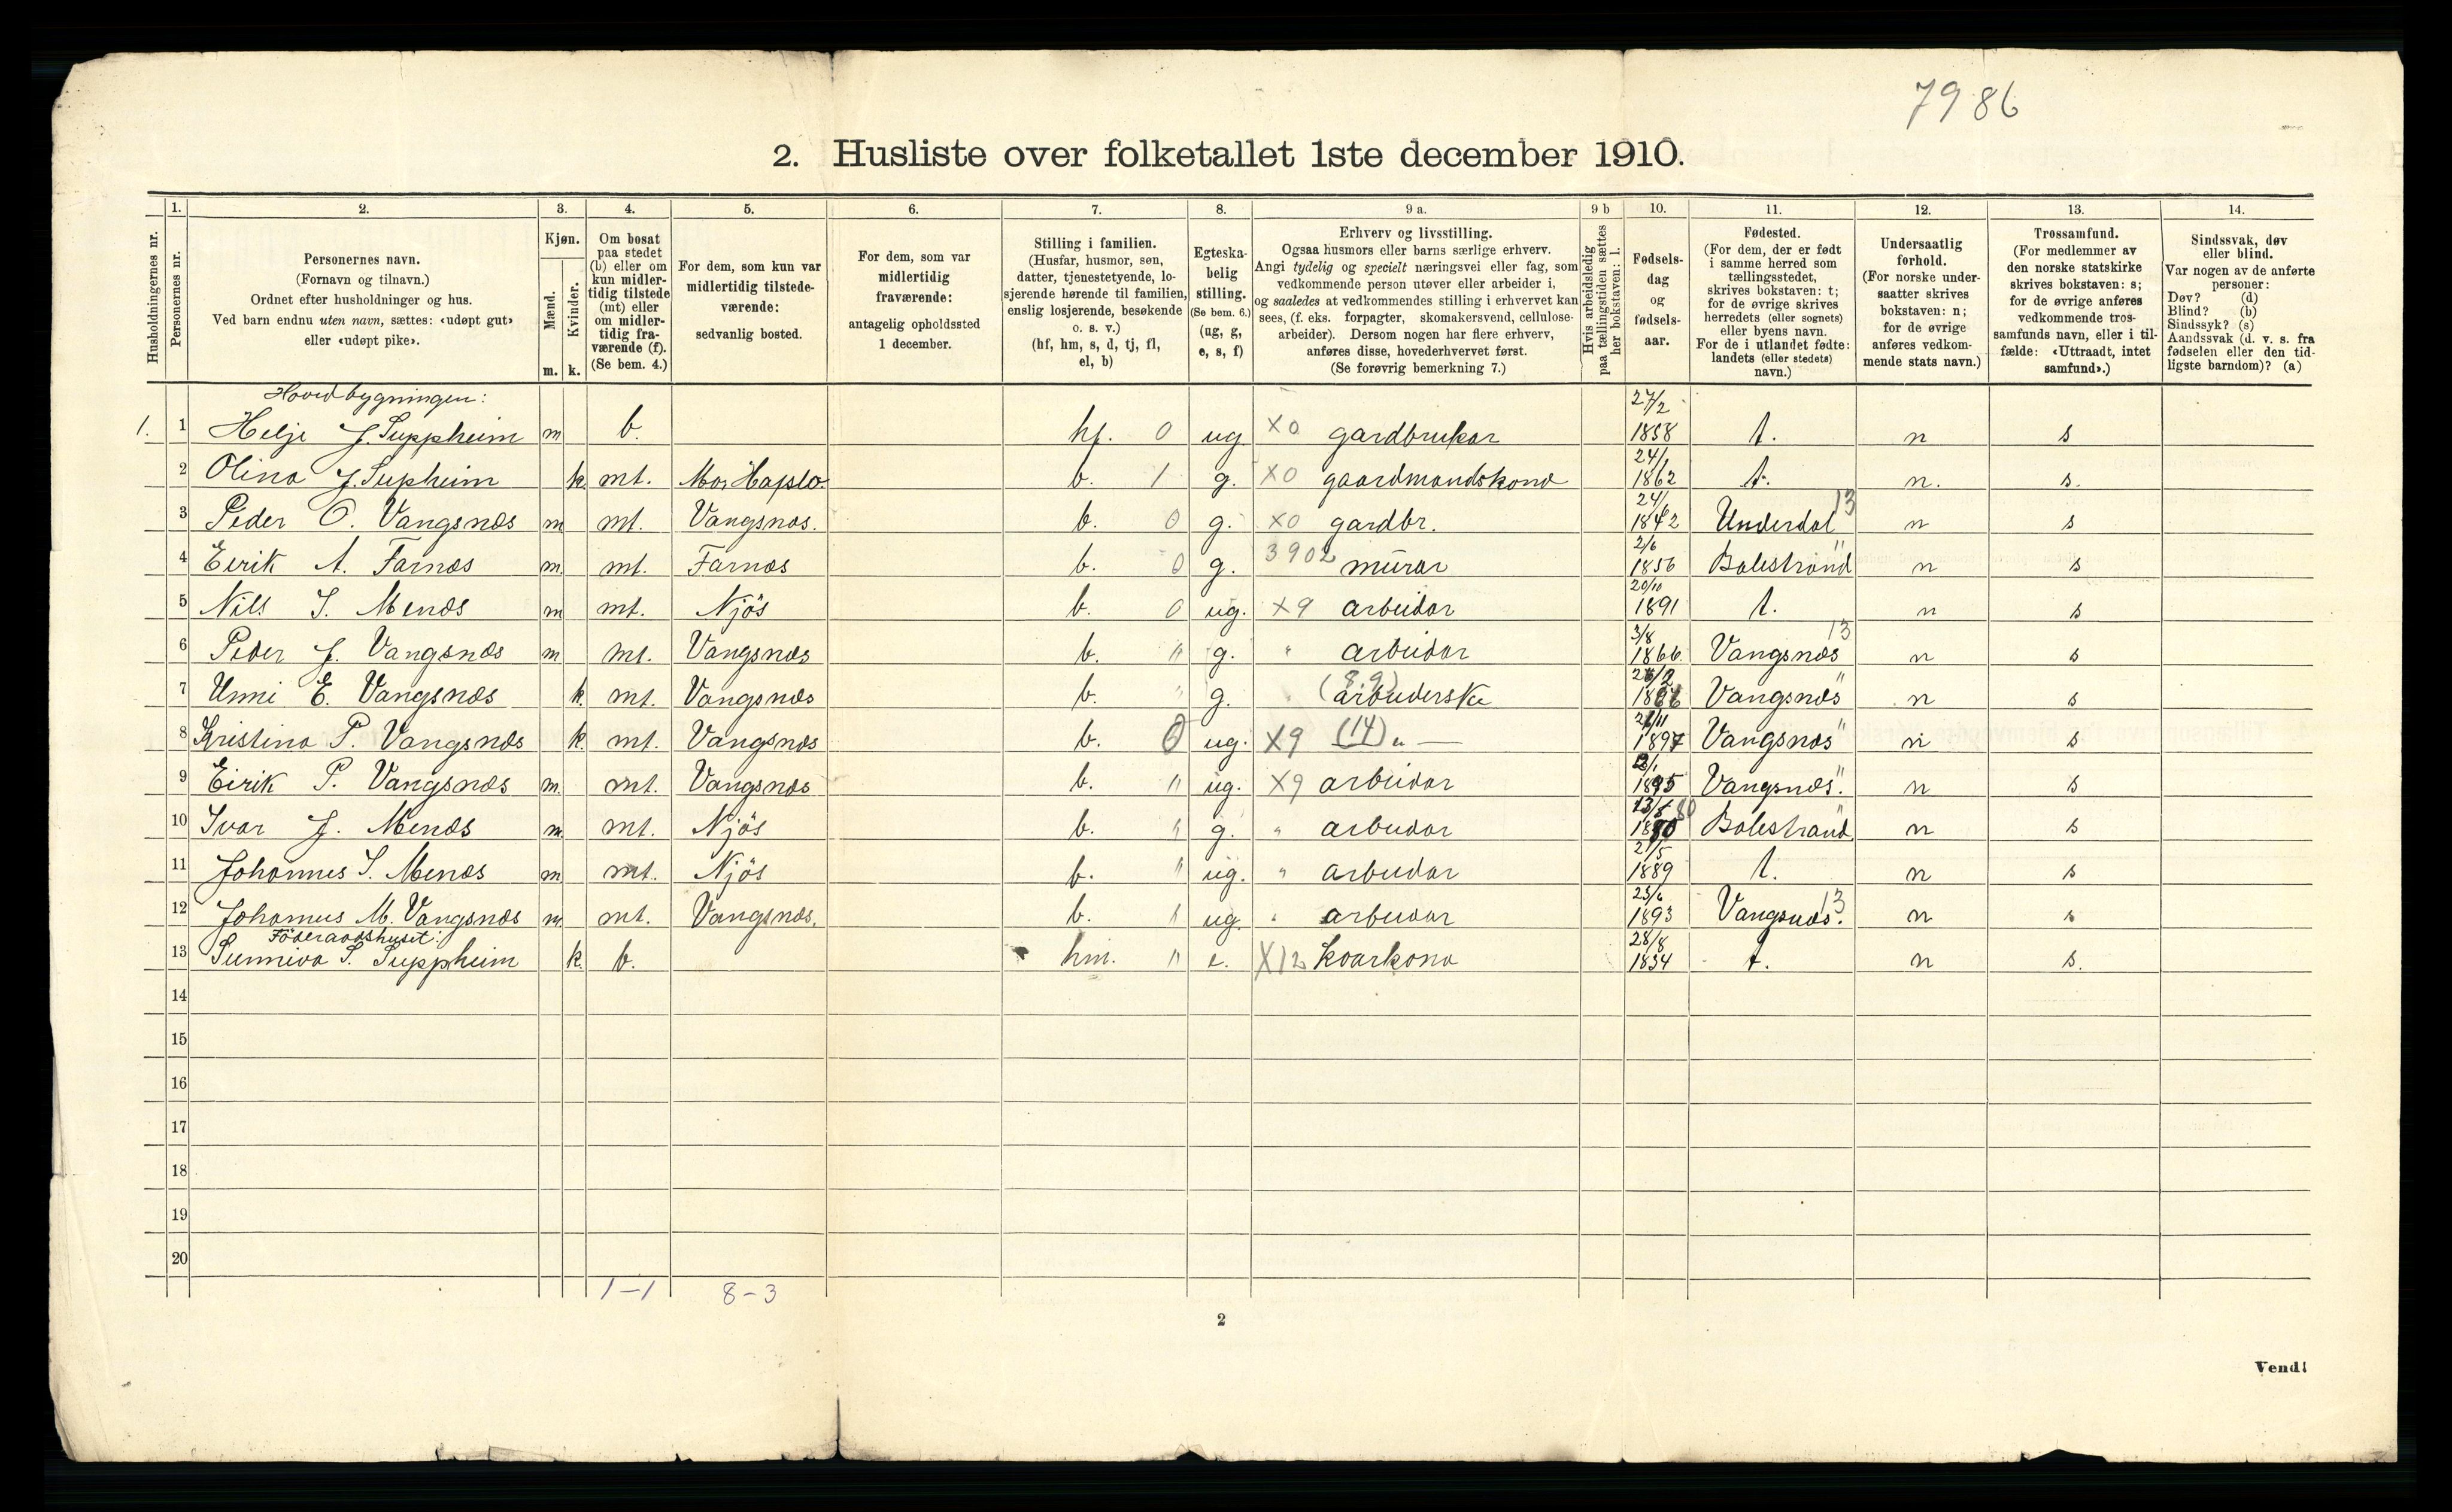 7986
2. Husliste over folketallet 1ste december 1910.
Husholdningernes nr.
1. Personernes nr.
2. Personernes navn.
(Fornavn og tilnavn.)
Ordnet efter husholdninger og hus.
Ved barn endnu uten navn, sættes: «udøpt gut»
eller «udøpt pike».
3. Kjøn.
Mænd. Kvinder.
m. k.
4. Om bosat
paa stedet
(b) eller om
kun midler-
tidig tilstede
(mt) eller
om midler-
tidig fra-
værende (f).
(Se bem. 4.)
5. For dem, som kun var
midlertidig tilstede-
værende:
sedvanlig bosted.
6. For dem, som var
midlertidig
fraværende:
antagelig opholdssted
1 december.
7. Stilling i familien.
(Husfar, husmor, søn,
datter, tjenestetyende, lo-
sjerende hørende til familien,
enslig losjerende, besøkende
o. s. v.)
(hf, hm, s, d, tj, fl,
el, b)
8. Egteska-
belig
stilling.
(Se bem. 6.)
(ug, g,
e, s, f)
9 a. Erhverv og livsstilling.
Ogsaa husmors eller barns særlige erhverv.
Angi tydelig og specielt næringsvei eller fag, som
vedkommende person utøver eller arbeider i,
og saaledes at vedkommendes stilling i erhvervet kan
sees, (f. eks. forpagter, skomakersvend, cellulose-
arbeider). Dersom nogen har flere erhverv,
anføres disse, hovederhvervet først.
(Se forøvrig bemerkning 7.)
9 b Hvis arbeidsledig
paa tællingstiden sættes
her bokstaven: l.
10. Fødsels-
dag
og
fødsels-
aar.
11. Fødested.
(For dem, der er født
i samme herred som
tællingsstedet,
skrives bokstaven: t;
for de øvrige skrives
herredets (eller sognets)
eller byens navn.
For de i utlandet fødte:
landets (eller stedets)
navn.)
12. Undersaatlig
forhold.
(For norske under-
saatter skrives
bokstaven: n;
for de øvrige
anføres vedkom-
mende stats navn.)
13. Trossamfund.
(For medlemmer av
den norske statskirke
skrives bokstaven: s;
for de øvrige anføres
vedkommende tros-
samfunds navn, eller i til-
fælde: «Uttraadt, intet
samfund».)
14. Sindssvak, døv
eller blind.
Var nogen av de anførte
personer:
Døv? (d)
Blind? (b)
Sindssyk? (s)
Aandssvak (d. v. s. fra
fødselen eller den tid-
ligste barndom)? (a)
Hovedbygningen:
1. 1 Helje J. Suppheim m b. hf. 0 ug. X0 gardbrukar 27/2 1858 t. n s
2 Olina J. Supheim k. mt. Hafslo. b. 1 g. X0 gaardmandskona 24/1 1862 t. n. s.
3 Peder O. Vangsnes m mt. Vangsnes. b. 0 g. X0 gardbr. 24/1 1842 Underdal 13 n s
4 Eirik A. Farnes m. mt. Farnes b. 0 g. 3902 murar 2/6 1856 Balestrand " n s
5 Nils I. Menes m mt. Njös b. 0 ug. X9 arbeidar 20/10 1891 t. n s
6 Peder J. Vangsnes m mt. Vangsnes b. " g. " arbeidar 3/8 1866 Vangsnes 13 n s
7 Unni E. Vangsnes k. mt. Vangsnes b. " g. (8.9) arbeiderske Vangsnes " n s
8 Kristina P. Vangsnes k. mt. Vangsnes b. 0 ug. X9 (14) " — 1897 Vangsnes " n s
9 Eirik P. Vangsnes m. mt. Vangsnes b. " ug. X9 arbeidar 1895 Vangsnes. " n s
10 Ivar J. Menes m. mt. Njös b. " g. " arbeidar 1880 80 Balestrand " n s
11 Johannes I. Menes m mt. Njös b. " ug. " arbeidar 21/5 1889 t. n s
12 Johannes M. Vangsnes m. mt. Vangsnes. b. " ug. " arbeidar 23/6 1893 Vangsnes. 13 n s
Föderaadshuset:
13 Sunniva S. Suppheim k. b. hm. " e. X12 kaarkona 28/8 1834 t. n s.
14
15
16
17
18
19
20
1-1 8-3
2
Vend!